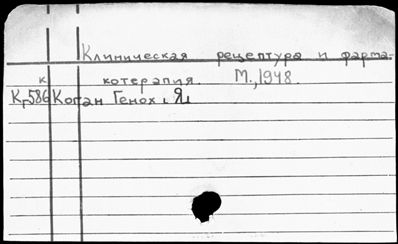 Клиническая рецептура и фарма-
к котерапия. М., 1948.
Кг586 Коган Генох Я.